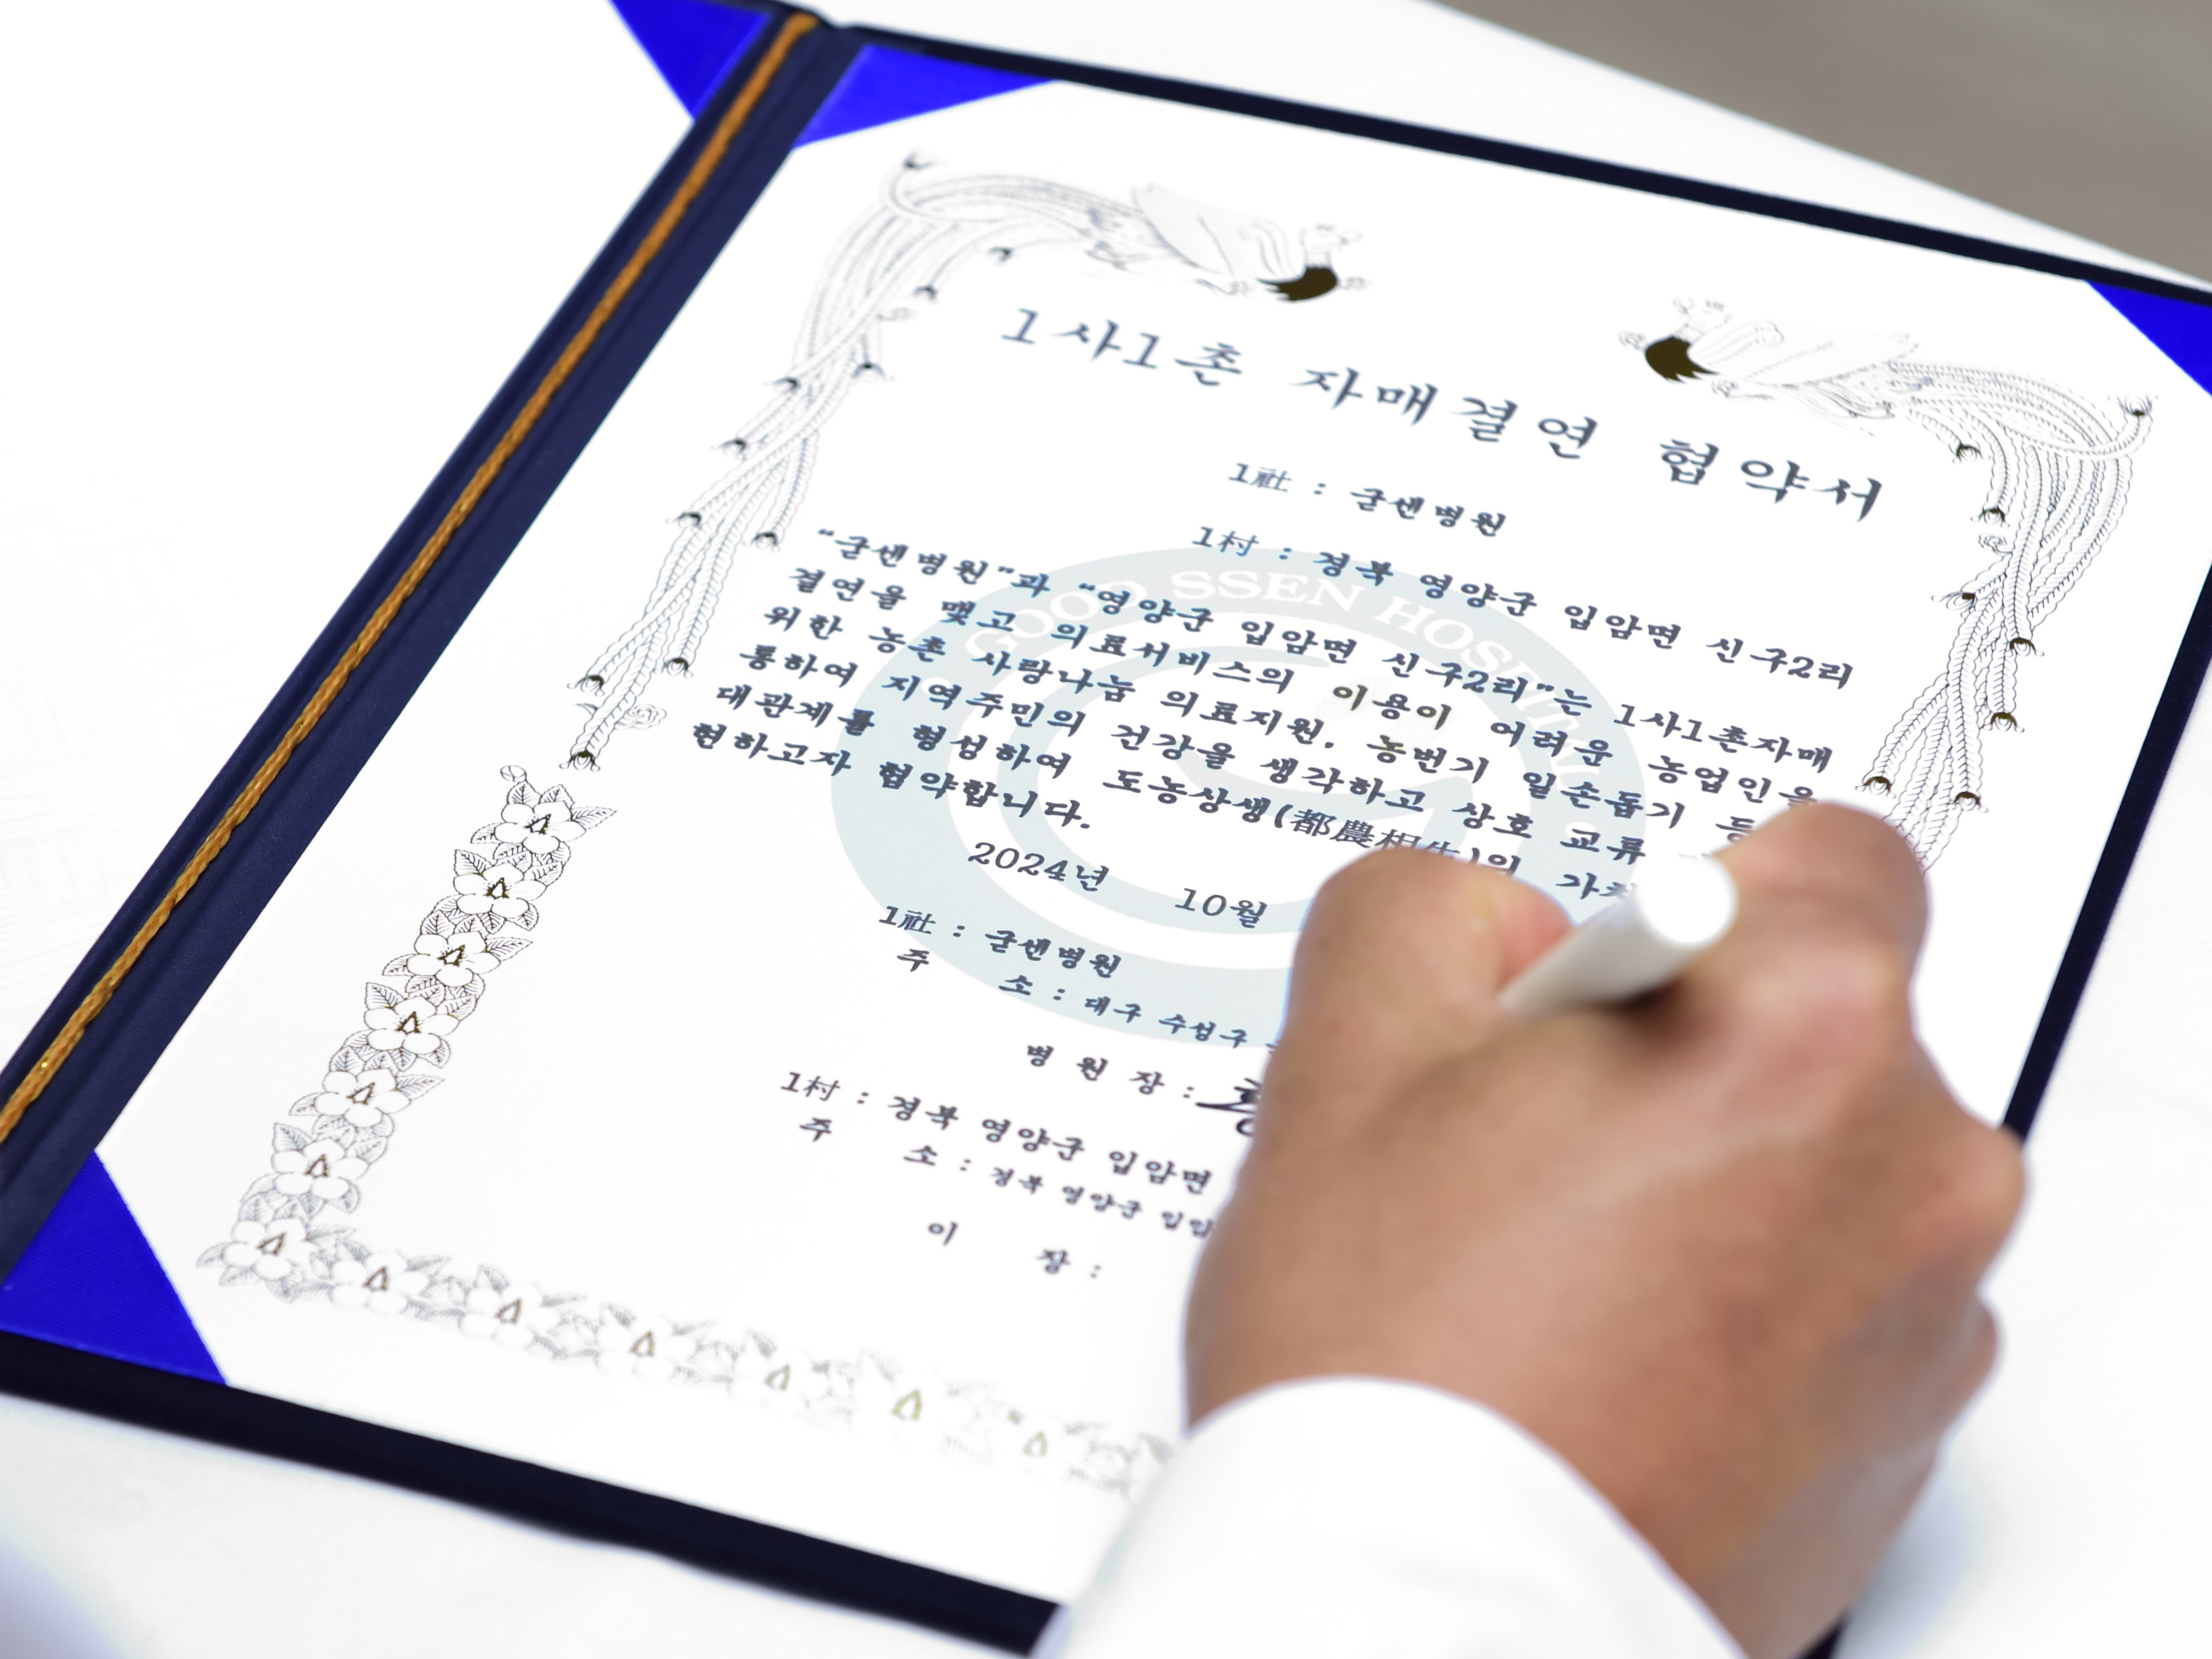 1사1촌 자매결연 협약서
1社 : 굳센병원
1村 : 경북 영양군 입암면 신구2리
GOOD SSEN HOSPITAL
“굳센병원”과 “영양군 입암면 신구2리”는 1사1촌자매
결연을 맺고 의료서비스의 이용이 어려운 농업인을
위한 농촌 사랑나눔 의료지원, 농번기 일손돕기 등
통하여 지역주민의 건강을 생각하고 상호 교류
대관계를 형성하여 도농상생(都農相生)의 가치
현하고자 협약합니다.
2024년 10월
1社 : 굳센병원
주 소 : 대구 수성구
병 원 장 :
1村 : 경북 영양군 입암면
주 소 : 경북 영양군 입암
이 장 :